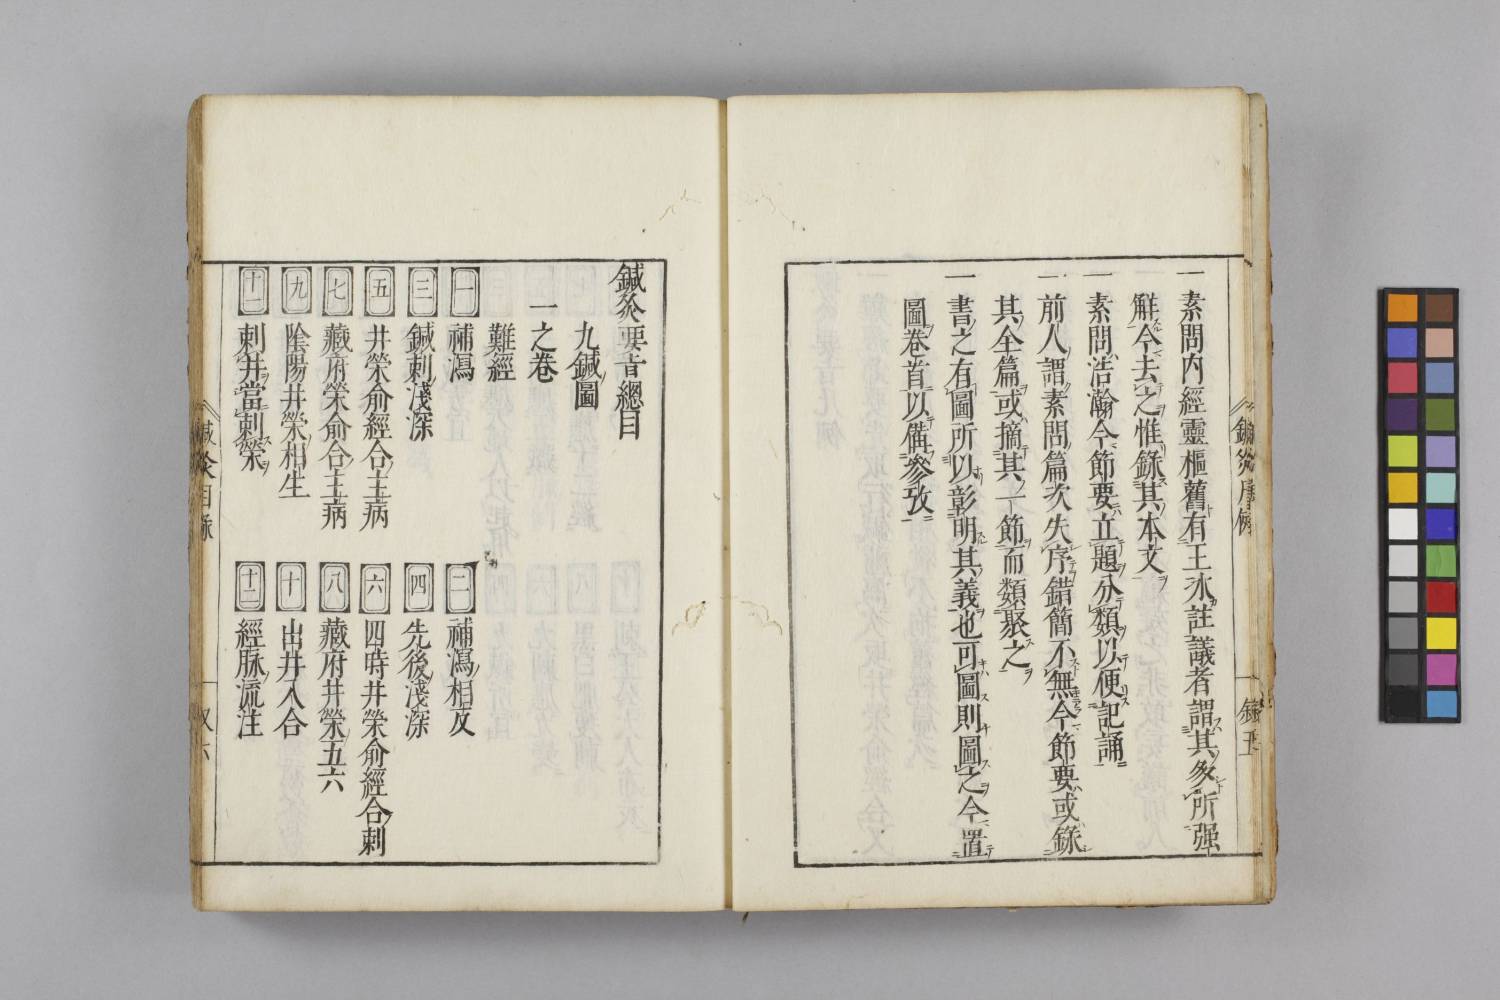 一素問內經靈樞舊有王氷註議者謂其多所强
觧今去之惟錄其本文
一素問浩瀚今節要立題分類以便記誦
一前人謂素問篇次失序錯簡不無今節要或錄
其全篇或摘其一節而類聚之
一書之有圖所以彰明其義也可圖則圖之今置
圖卷首以備參攷
鍼灸要旨總目
九鍼圖
一之卷
難經
一 補瀉
二 補瀉相反
三 鍼刺淺深
四 先後淺深
五 井滎俞經合主病
六 四時井滎俞經合刺
七 藏府滎俞合主病
八 藏府井滎五六
九 陰陽井滎相生
十 出井入合
十一 刺井當刺滎
十二 經脉流注